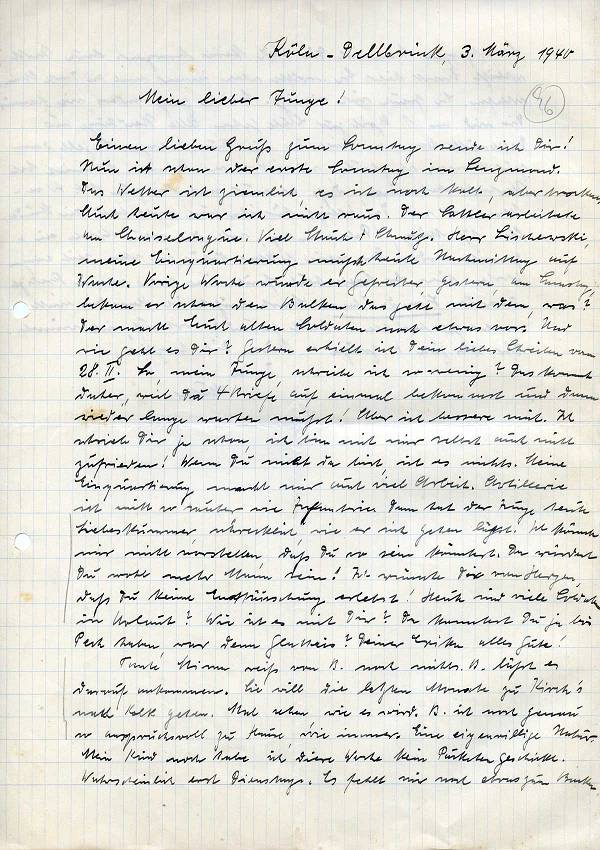 Köln-Dellbrück, 3. März 1940
46
Mein lieber Junge!
Einen lieben Gruß zum Sonntag sende ich Dir!
Nun ist schon der erste Sonntag im Lenzmond.
Das Wetter ist ziemlich, es ist noch kalt, aber trocken.
Auch heute war ich nicht raus. Der Sattler arbeitete
am Chaiselongue. Viel Staub + Schmutz. Herr Lischewski,
meine Einquartierung muß heute Nachmittag auf
Wache. Vorige Woche wurde er Gefreiter, gestern, am Samstag,
bekam er schon den Balken, das geht mit dem, was?
Der macht Euch alten Soldaten noch etwas vor. Und
wie geht es Dir? Gestern erhielt ich Dein liebes Schreiben vom
28.II. So mein Junge, schreibe ich so wenig? Das kommt
daher, weil Du 4 Briefe auf einmal bekommst und dann
wieder lange warten mußt! Aber ich bessere mich. Ich
schrieb Dir ja schon, ich bin mit mir selbst auch nicht
zufrieden! Wenn Du nicht da bist, ist es nichts. Meine
Einquartierung macht mir auch viel Arbeit. Artillerie
ist nicht so sauber wie Infanterie. Dann hat der Junge heute
Liebeskummer, schrecklich, wie er sich gehen läßt. Ich könnte
mir nicht vorstellen, daß Du so sein könntest. Da würdest
Du wohl mehr Mann sein! Ich wünsche Dir von Herzen,
daß Du keine Enttäuschung erlebst! Heute sind viele Soldaten
in Urlaub? Wie ist es mit Dir? Da konntest Du ja bis
Pech haben, war denn Glatteis? Deiner Erika alles Gute!
Tante Minna weiß von B. noch nichts. B. läßt es
darauf ankommen. Sie will die letzten Monate zu Kirch's
nach Kalk gehen. Mal sehen wie es wird. B. ist noch genau
so anspruchsvoll zu Hause, wie immer. Eine eigenwillige Natur.
Mein Kind noch habe ich diese Woche kein Päckchen geschickt.
Wahrscheinlich erst Dienstags. Es fehlt mir noch etwas zum Backen.